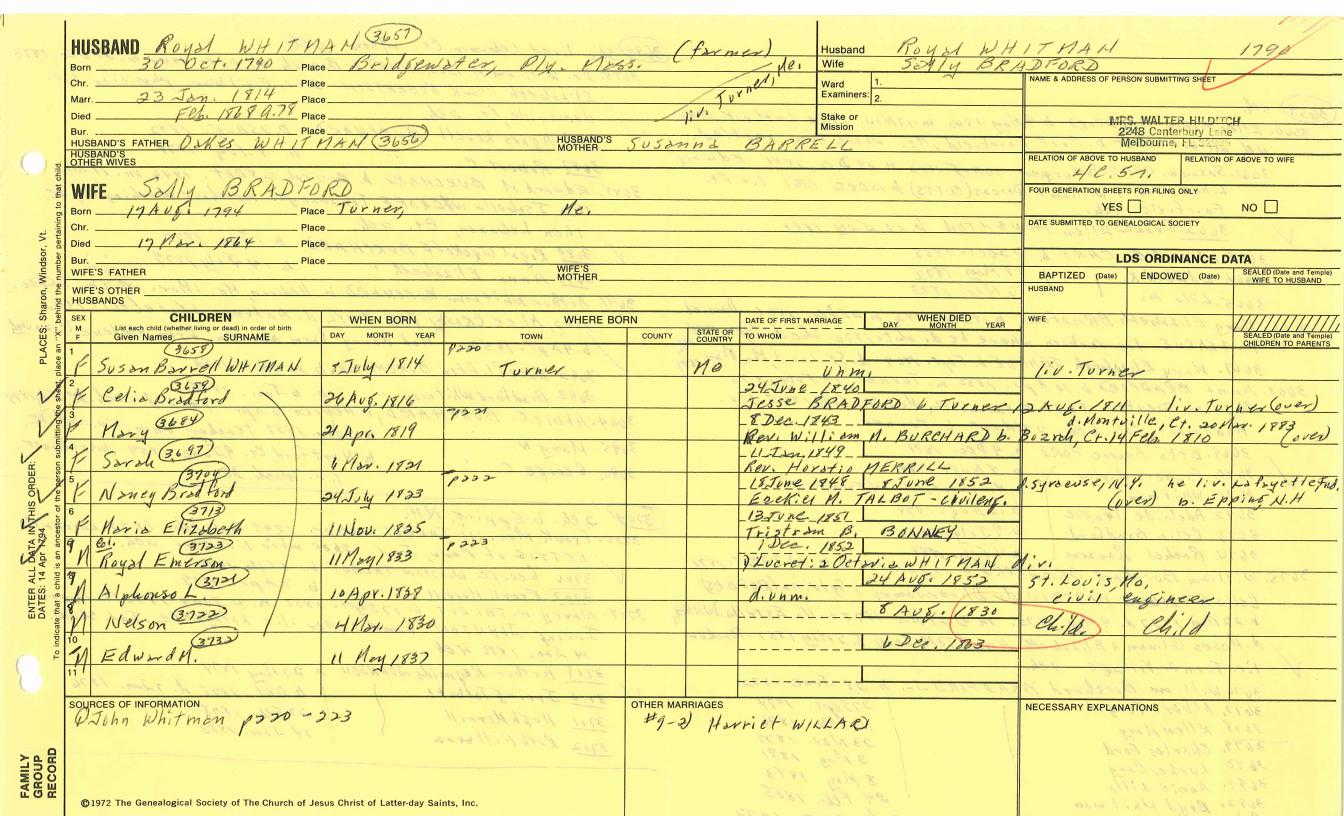 HUSBAND Royal WHITMAN 3657 (farmer)
Born 30 Oct. 1790 Place Bridgewater, Ply. Mass.
Chr. Place liv. Turner, Me.
Marr. 23 Jan. 1814 Place
Died Feb. 1868 a.78 Place
Bur. Place
HUSBAND'S FATHER Oakes WHITMAN 3656 HUSBAND'S MOTHER Susanna BARRELL
HUSBAND'S OTHER WIVES
WIFE Sally BRADFORD
Born 17 Aug. 1794 Place Turner, Me.
Chr. Place
Died 17 Mar. 1864 Place
Bur. Place
WIFE'S FATHER WIFE'S MOTHER
WIFE'S OTHER HUSBANDS
Husband Royal WHITMAN 1790
Wife Sally BRADFORD
Ward Examiners: 1.
2.
Stake or Mission
NAME & ADDRESS OF PERSON SUBMITTING SHEET
MRS. WALTER HILDITCH
2248 Canterbury Lane
Melbourne, FL
RELATION OF ABOVE TO HUSBAND RELATION OF ABOVE TO WIFE
4C.5r.
FOUR GENERATION SHEETS FOR FILING ONLY
YES NO
DATE SUBMITTED TO GENEALOGICAL SOCIETY
LDS ORDINANCE DATA
BAPTIZED (Date) ENDOWED (Date) SEALED (Date and Temple) WIFE TO HUSBAND
HUSBAND
WIFE
SEALED (Date and Temple) CHILDREN TO PARENTS
SEX M F CHILDREN WHEN BORN WHERE BORN DATE OF FIRST MARRIAGE WHEN DIED
List each child (whether living or dead) in order of birth
Given Names SURNAME DAY MONTH YEAR TOWN COUNTY STATE OR COUNTRY TO WHOM DAY MONTH YEAR
1 3658 p220
F Susan Barrell WHITMAN July 1814 Turner Me unm. liv. Turner
2 3659 24 June 1840
F Celia Bradford 26 Aug. 1816 Jesse BRADFORD b. Turner 12 Aug. 1811 liv. Turner (over)
3 3684 p221 8 Dec. 1843 d. Montville, Ct. 20 Mar. 1883
F Mary 21 Apr. 1819 Rev. William M. BURCHARD b. Bozrah, Ct. 14 Feb. 1810 (over)
4 3697 11 Jan. 1849
F Sarah 6 Mar. 1821 Rev. Horatio MERRILL
5 3704 p222 18 June 1848 8 June 1852 d. Syracuse, N.Y. he liv. Lafayette Ind.
F Nancy Bradford 24 July 1823 Ezekiel M. TALBOT - civil eng. (over) b. Epping N.H
6 3713 13 June 1851
F Maria Elizabeth 11 Nov. 1825 Tristram B. BONNEY
9 Col. 3723 p223 1 Dec. 1852
M Royal Emerson 11 May 1833 1) Lucretia Octavia WHITMAN div.
3721 24 Aug. 1852 St. Louis, Mo,
M Alphonso L. 10 Apr. 1828 d. unm. civil engineer
8 3722 8 Aug. 1830
M Nelson 4 Mar. 1830 Child. Child
10 3732 6 Dec. 1863
M Edward M. 11 May 1837
11
SOURCES OF INFORMATION
John Whitman p220-223
OTHER MARRIAGES
#9-2) Harriet WILLARD
NECESSARY EXPLANATIONS
©1972 The Genealogical Society of The Church of Jesus Christ of Latter-day Saints, Inc.
FAMILY GROUP RECORD
ENTER ALL DATA IN THIS ORDER:
DATES: 14 Apr 1794
PLACES: Sharon, Windsor, Vt.
To indicate that a child is an ancestor of the person submitting the sheet, place an "X" behind the number pertaining to that child.